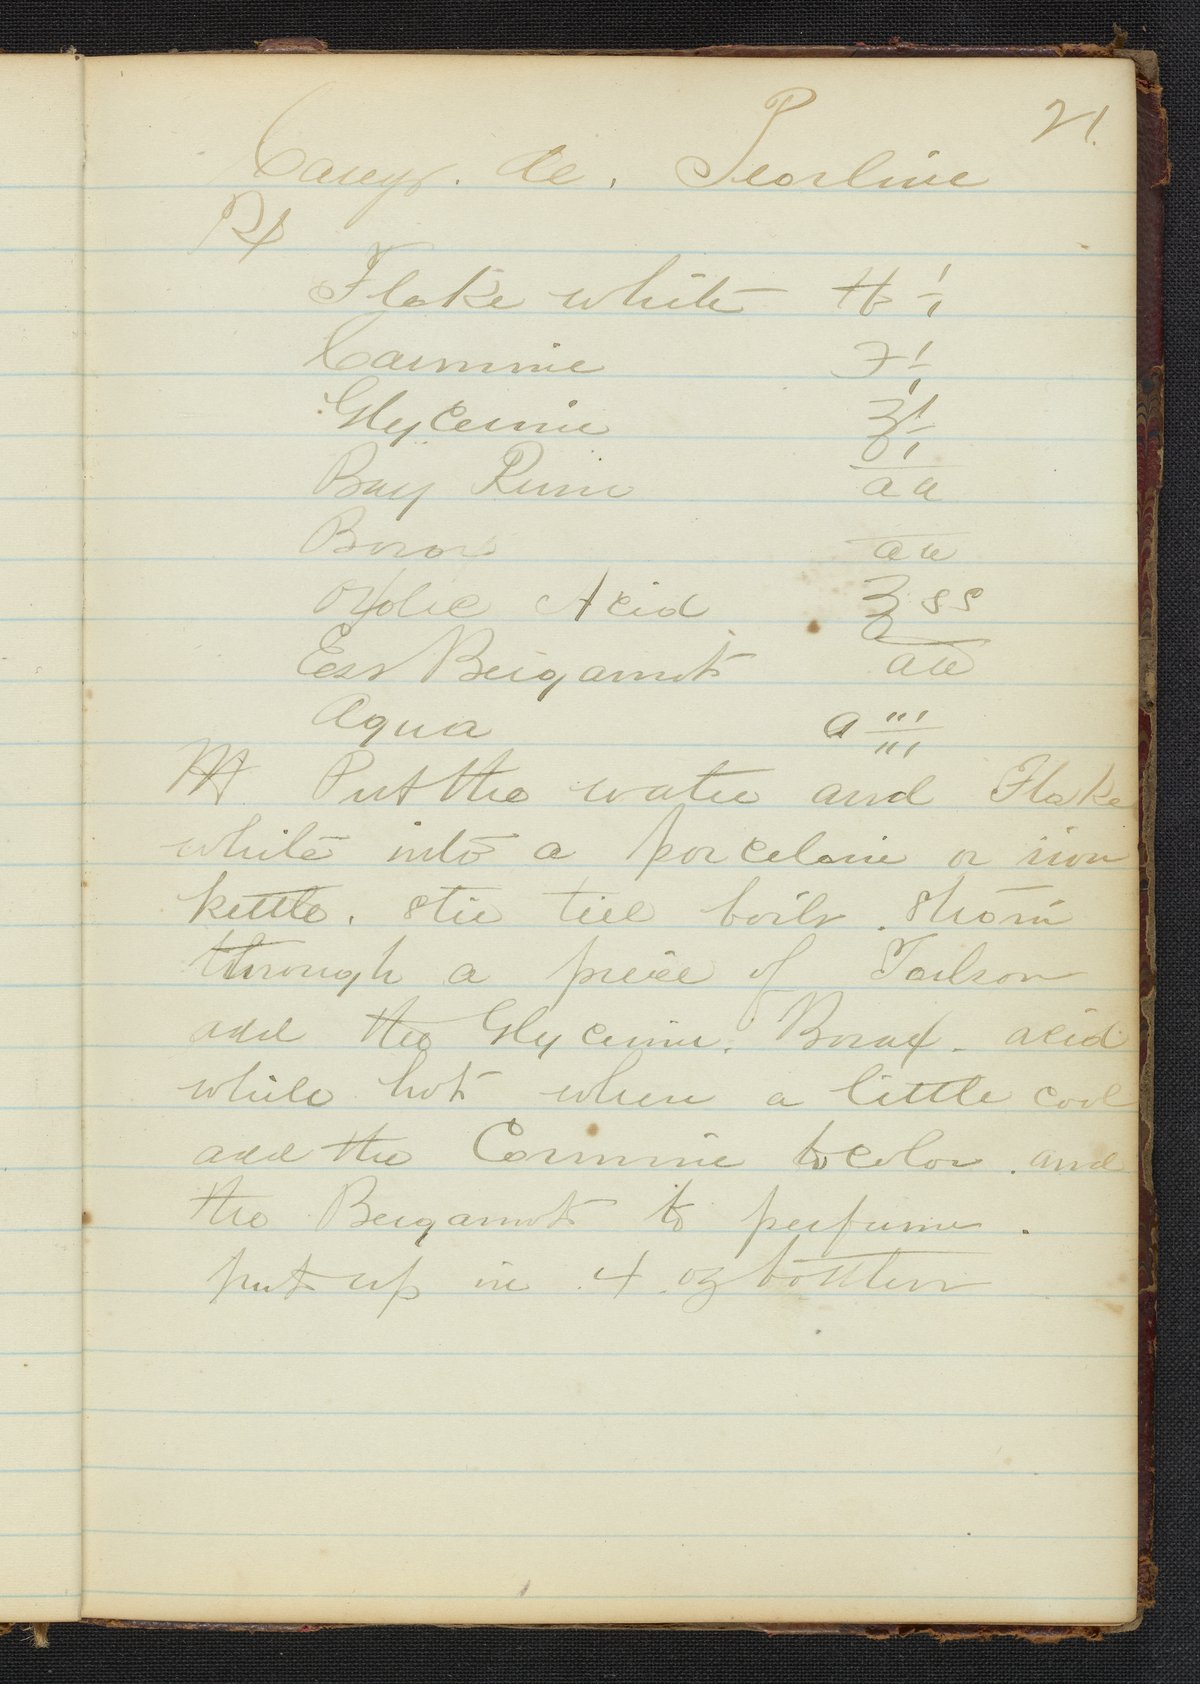 21.
Careys. de. Pearline
Rx
Flake white ℔ i
Carmine ʒ i
Glycerine ℥ i
Bay Rum aa
Borax aa
Oxolic Acid ℥ ss
Ess Bergamot aa
Aqua O iii
M Put the water and Flake
white into a porcelane or iron
kettle. stir till boils. strain
through a piece of
add the Glycerine. Borax. acid
while hot when a little cool
add the Carmine to color. and
the Bergamot to perfume.
put up in 4 oz bottles